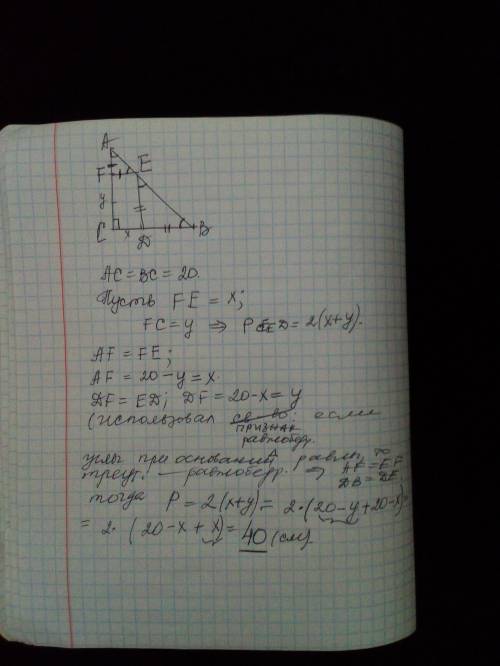 A
F
E
y
C
x
D
B
AC = BC = 20.
Пусть FE = x;
FC = y ⇒ P = 2(x+y).
AF = FE;
AF = 20 - y = x.
DF = ED; DF = 20 - x = y
(использовал св-во: если
признак
равнобедр.
углы при основании равны, то
треуг. — равнобедр. ⇒ AF = EF
DB = DE)
тогда P = 2(x+y) = 2·(20-y+20-x)=
= 2·(20-x+x)= 40 (см)